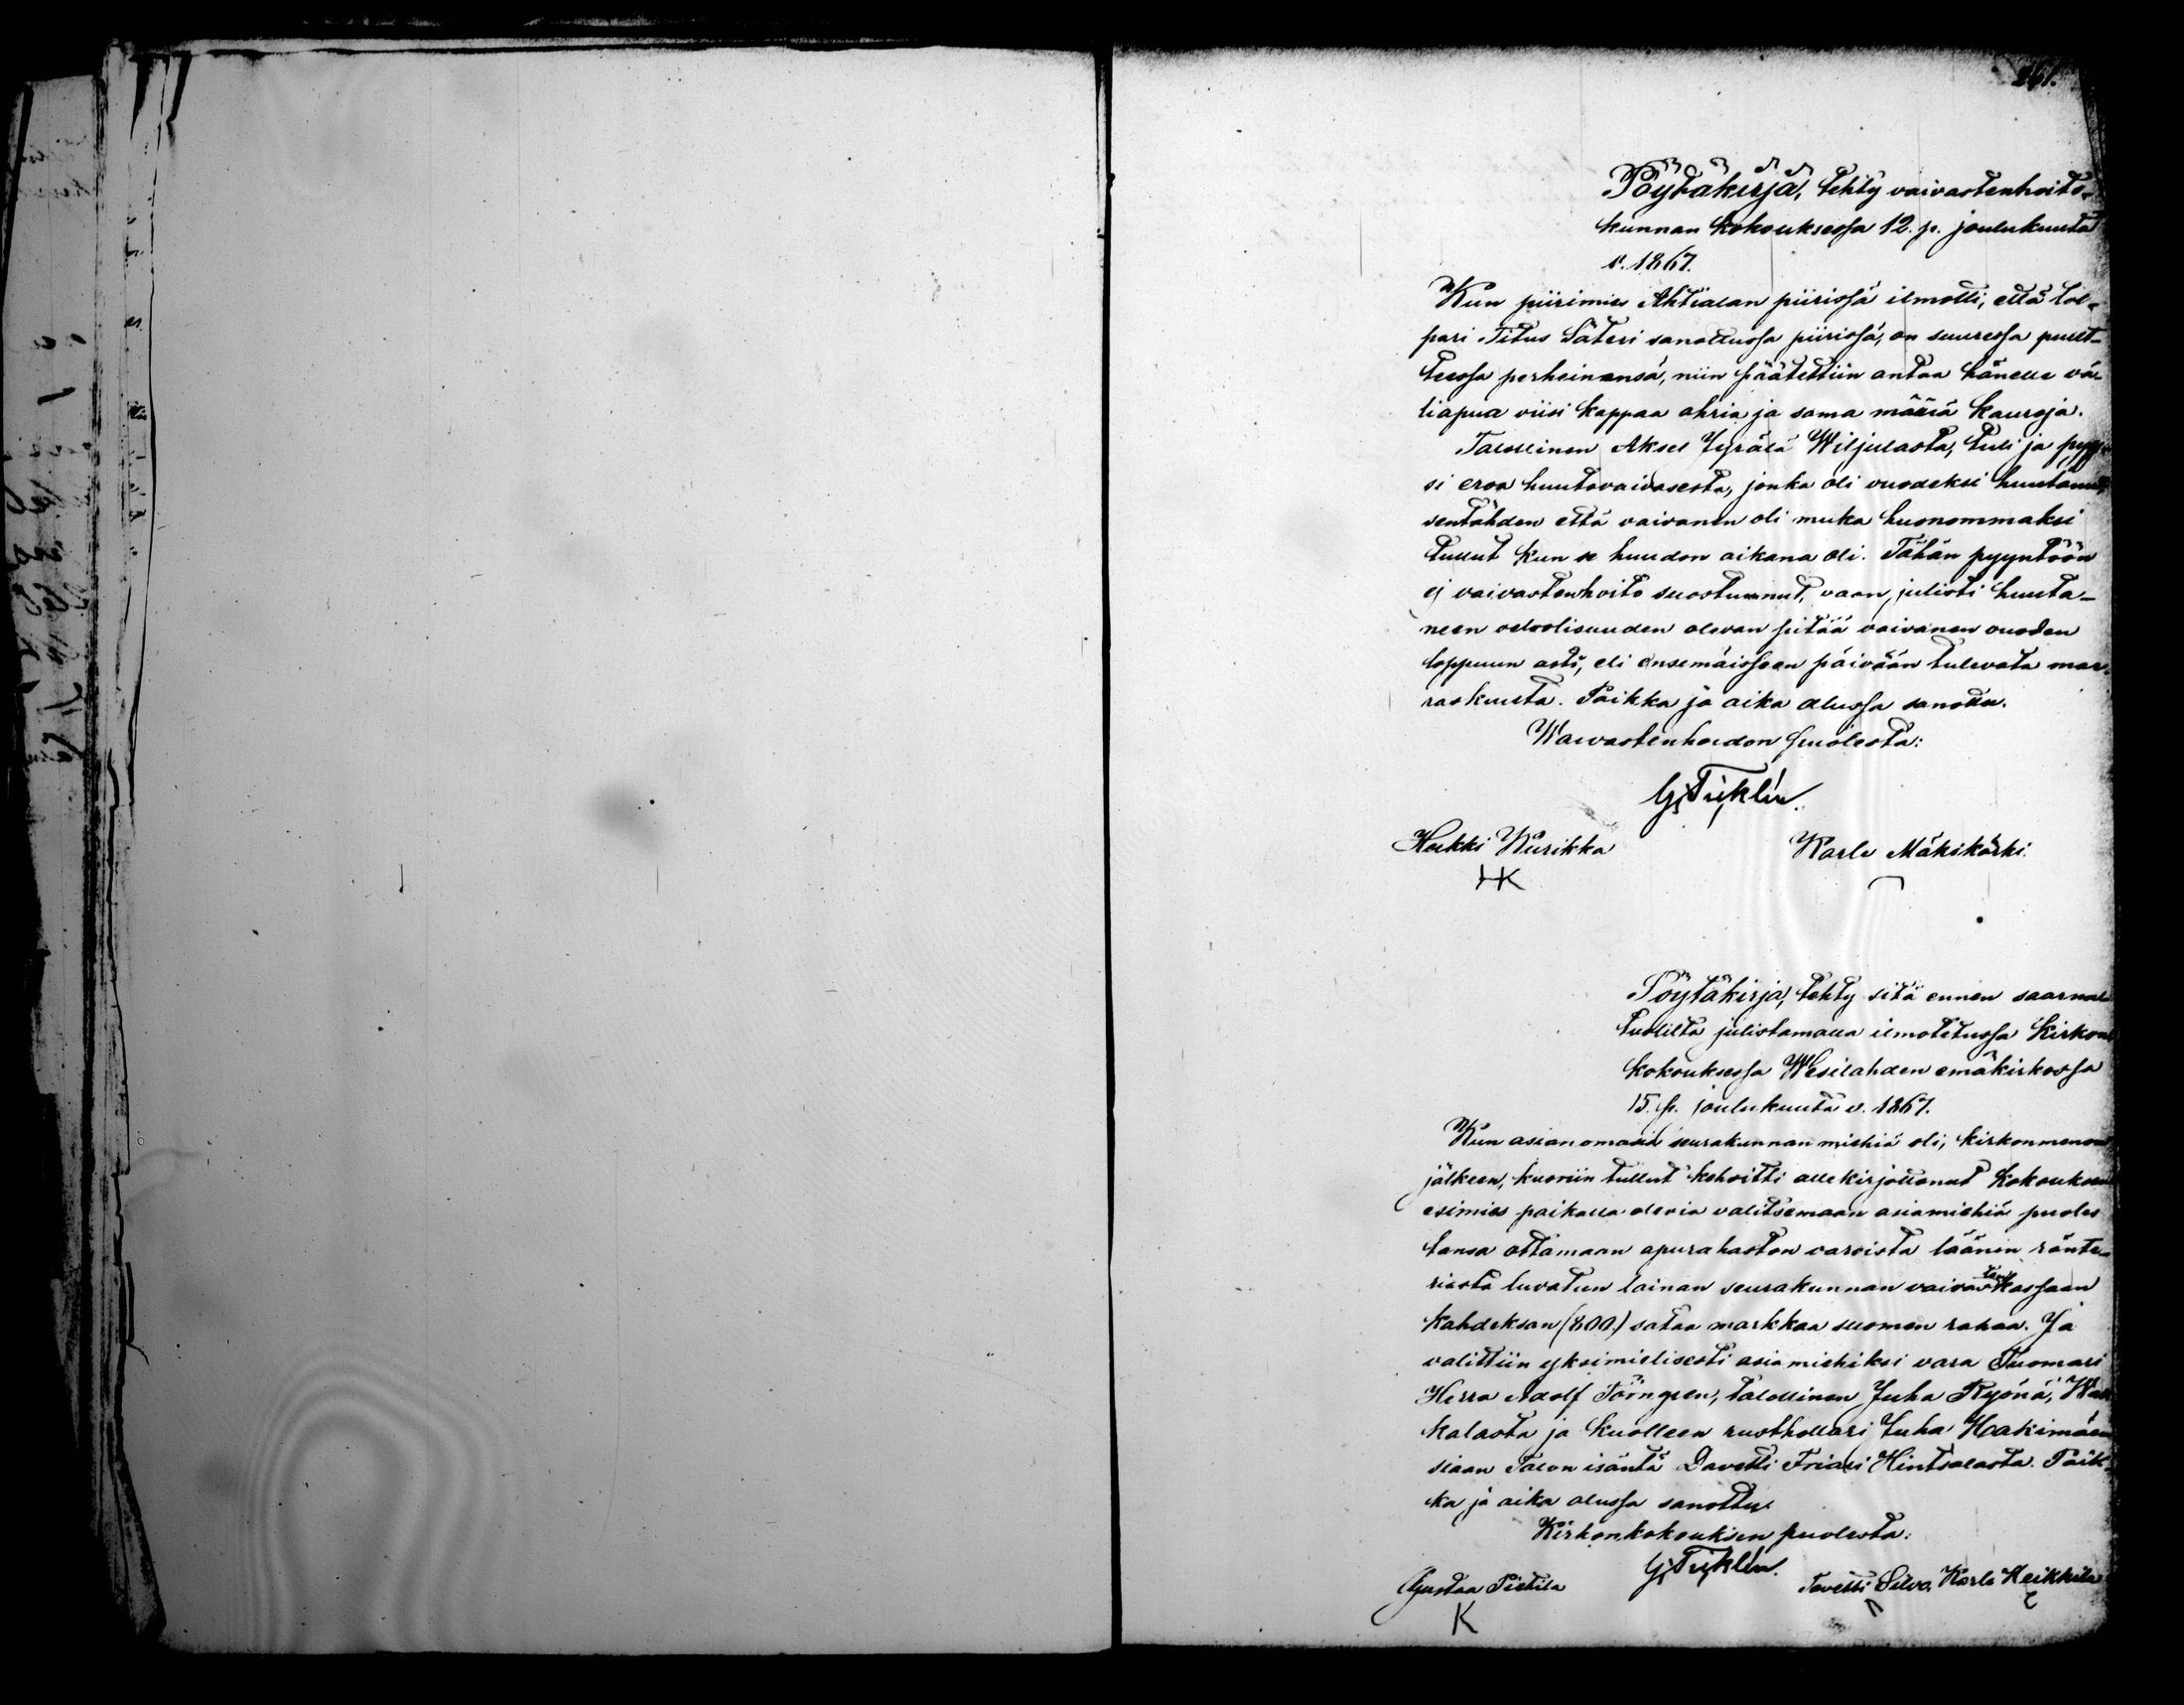 261.
Pöytäkirja, tehty vaivastenhoito-
kunnan kokouksessa 12. p. joulukuuta
v. 1867.
Kun piirimies Ahtialan piirissä ilmotti, että tol-
pari Titus Säteri sanottussa piirissä, on suuressa puut-
teessa perheinensä, niin päätettiin antaa hänelle vä-
liapua viisi kappaa ohria ja sama määrä kauroja.
Talollinen Aksel Jyrälä Wiljulasta, tuli ja pyy-
si eroa huutovaivasesta, jonka oli vuodeksi huutanut,
sentähden että vaivanen oli muka huonommaksi
tullut kun se huudon aikana oli. Tähän pyyntöön
ej vaivastenhoito suostunnut, vaan julisti huuta-
neen velvolisuuden olevan pitää vaivanen vuoden
loppuun asti, eli ensemäisseen päivään tulevata mar-
raskuuta. Paikka ja aika alussa sanottu.
Waivastenhoidon puolesta:
Gj Tujklin.
Heikki Kurikka
Karle Mäkikärki.
HK
Pöytäkirja, tehty sitä ennen saarna
tuolilta julistamalla ilmotetussa Kirkon
kokouksessa Wesilahden emäkirkossa
15. p. joulukuuta v. 1867.
Kun asianomasia seurakunnan miehiä oli, kirkonmenon
jälkeen, kuoriin tullut kehoitti allekirjottanut Kokouksen
esimies paikalla olevia valitsemaan asiamiehiä puoles
tansa ottamaan apurahaston varoista läänin ränte-
riasta luvatun lainan seurakunnan vaivastenkassaan
kahdeksan (800) sataa markkaa suomen rahaa. Ja
valittiin yksimielisesti asiamiehiksi vara Tuomari
Herra Adolf Törngren, talollinen Juha Ryönä,
kalasta ja kuolleen rusthollari Juha Haakimäen
siaan Talon isäntä Davetti Friari Hintsalasta. Paik-
ka ja aika alussa sanottu
Kirkonkokouksen puolesta:
Gj Tujklin.
Gustaa Pietilä
Tavetti Silvo, Karle Heikkilä
K